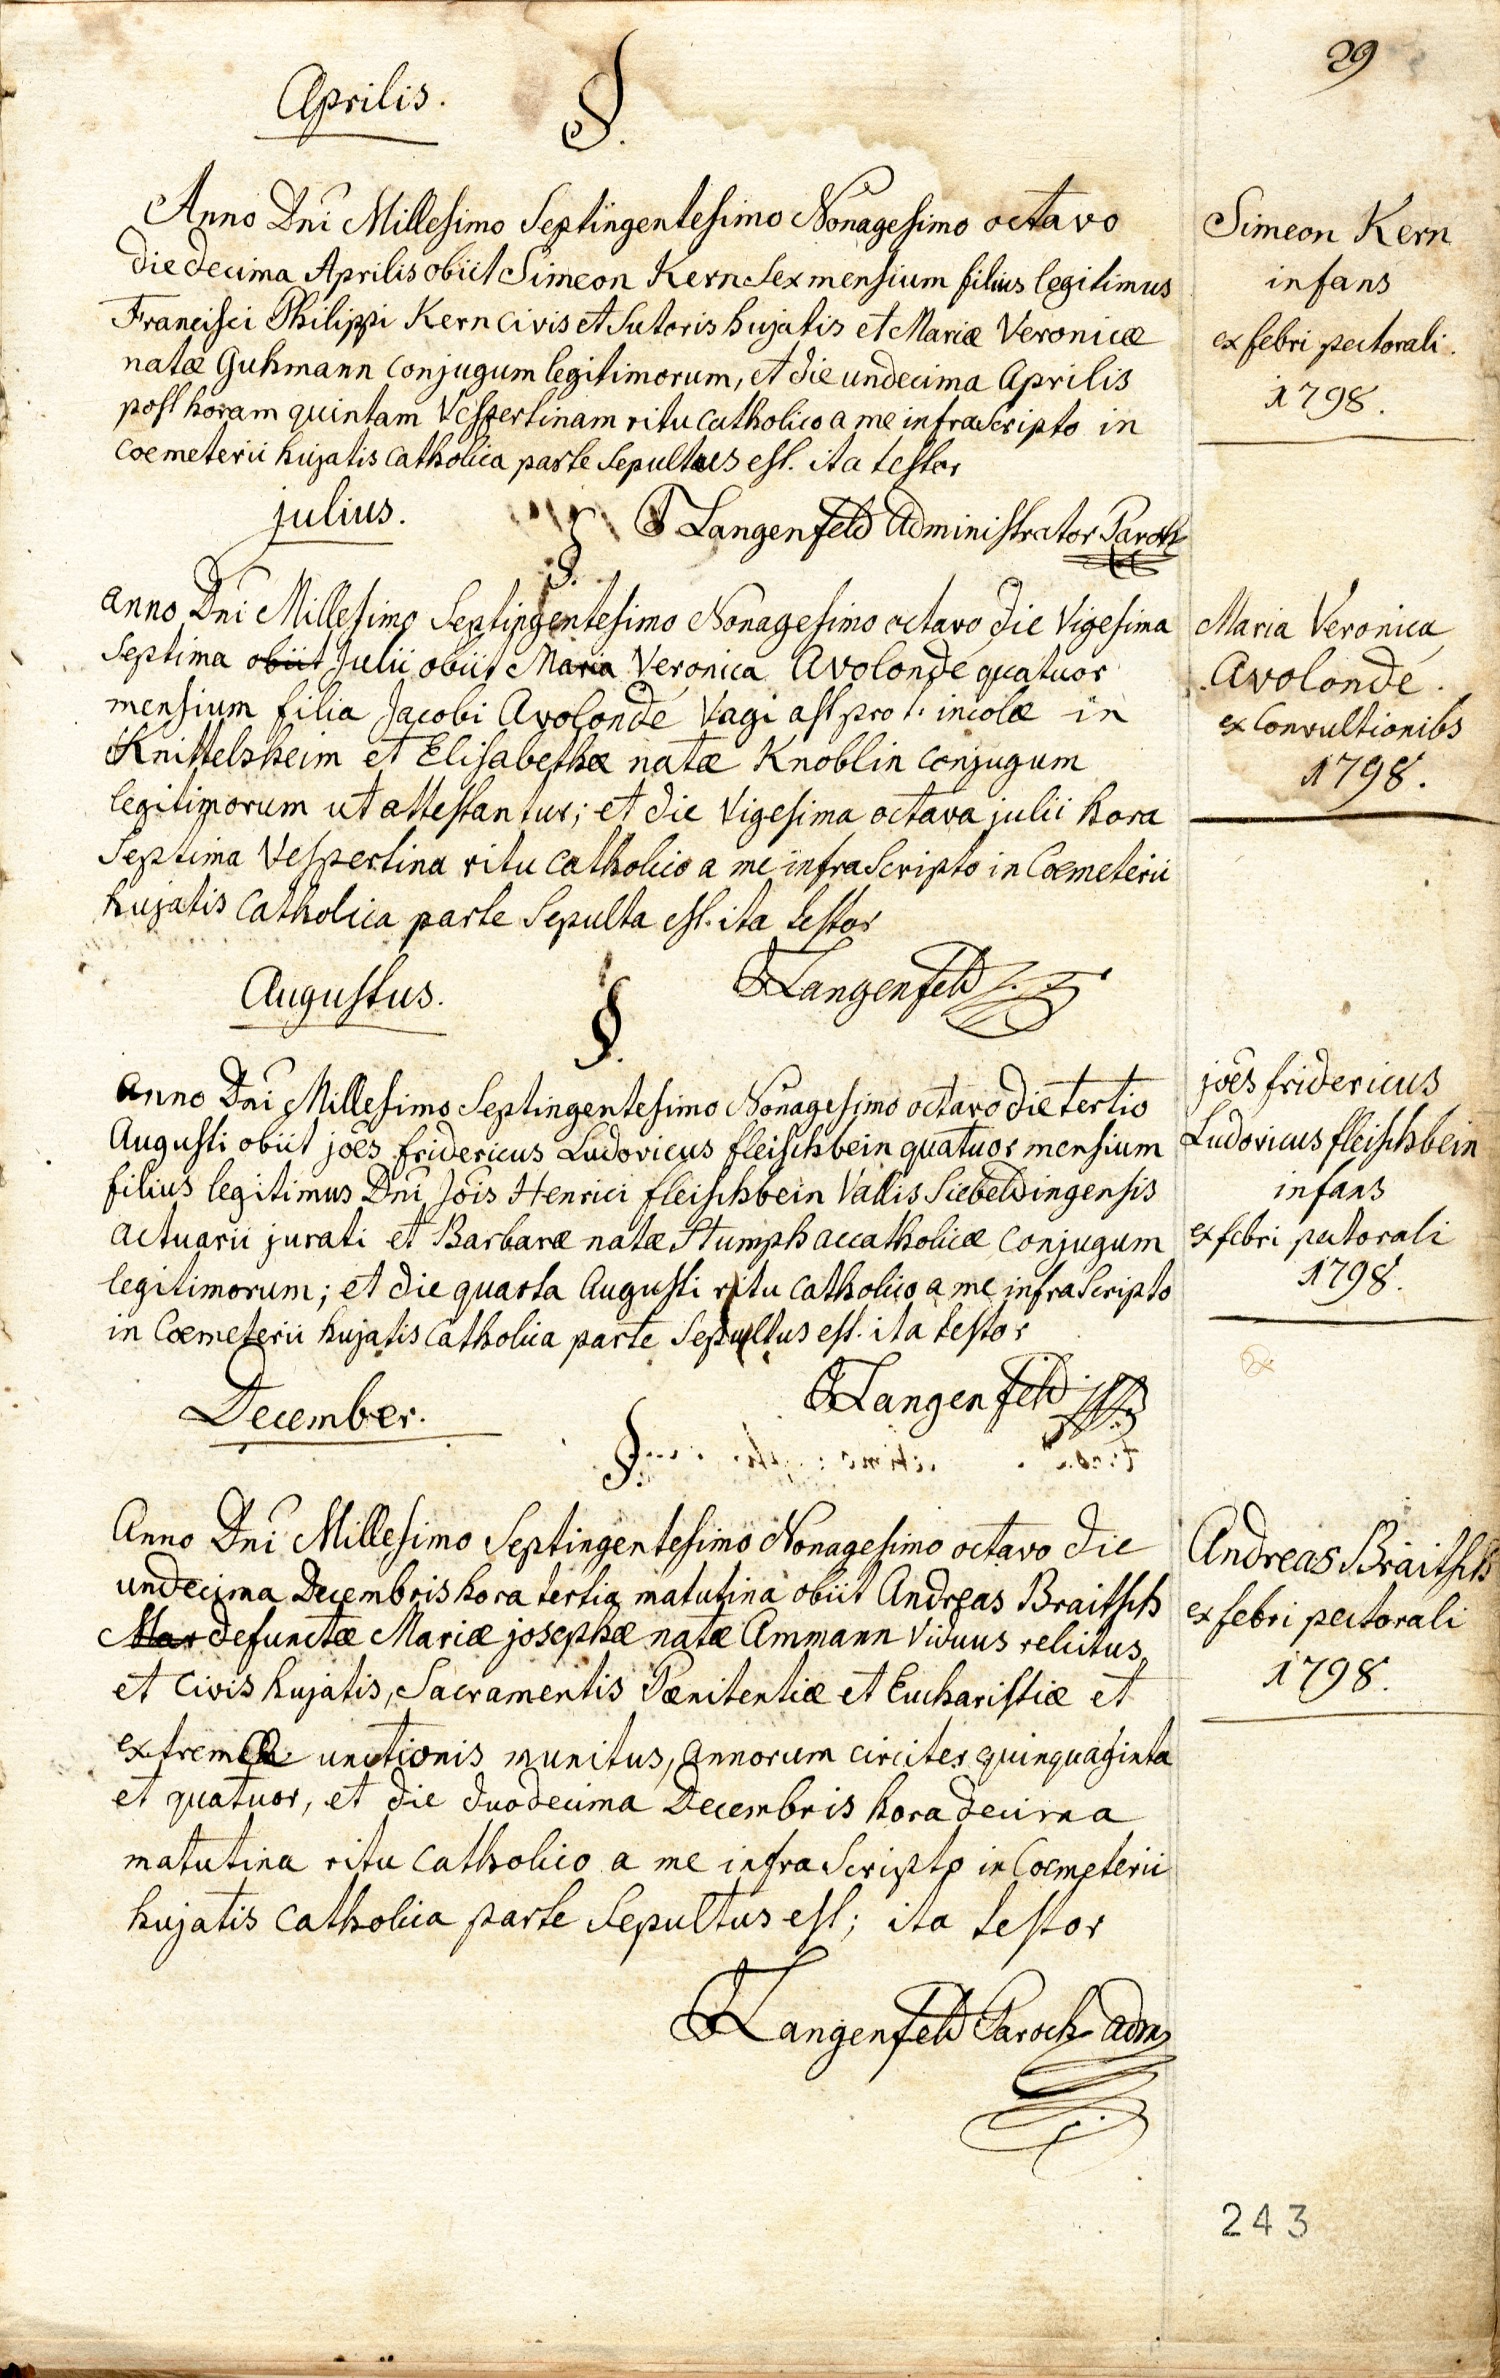 29
Aprilis.
§.
Anno Dni Millesimo Septingentesimo Nonagesimo octavo
die decima Aprilis obiit Simeon Kern Sex mensium filius legitimus
Francisci Philippi Kern civis et Sutoris hujatis et Mariæ Veronicæ
natæ Guhmann conjugum legitimorum, et die undecima Aprilis
post horam quintam Vespertinam ritu catholico a me infrascripto in
Coemeterii hujatis catholica parte Sepultus est. ita testor
Langenfeld Administrator Paroch
Simeon Kern
infans
ex febri pectorali.
1798.
julius.
§.
anno Dni Millesimo Septingentesimo Nonagesimo octavo die Vigesima
Septima obiit Julii obiit Maria Veronica Avolonde quatuor
mensium filia Jacobi Avolonde Vagi ast pro t. incolæ in
Knittelsheim et Elisabethæ natæ Knoblin conjugum
legitimorum ut attestantur; et die Vigesima octava julii hora
Septima Vespertina ritu catholico a me infraScripto in Coemeterii
hujatis Catholica parte Sepulta est. ita testor
Langenfeld
Maria Veronica
Avolonde.
ex Convultionibs
1798.
Augustus.
§.
anno Dni Millesimo Septingentesimo Nonagesimo octavo die tertio
Augusti obiit joes fridericus Ludovicus fleischbein quatuor mensium
filius legitimus Dni Jois Henrici fleischbein Vallis Siebeldingensis
actuarii jurati et Barbaræ natæ Stumph accatholicæ conjugum
legitimorum; et die quarta Augusti ritu catholico a me infraScripto
in Coemeterii hujatis catholica parte Sepultus est. ita testor
Langenfeld
joes fridericus
Ludovicus fleischbein
infans
ex febri pectorali
1798.
December.
§.
Anno Dni Millesimo Septingentesimo Nonagesimo octavo die
undecima Decembris hora tertia matutina obiit Andreas Braitsch
Mar defunctæ Mariæ josephæ natæ Ammann Viduus relictus,
et civis hujatis, Sacramentis Pænitentiæ et Eucharistiæ et
extremæ unctionis munitus, annorum circiter quinquaginta
et quatuor, et die duodecima Decembris hora decima
matutina ritu catholico a me infraScripto in Coemeterii
hujatis catholica parte Sepultus est; ita testor
Langenfeld Paroch adm
Andreas Braitsch
ex febri pectorali
1798.
243